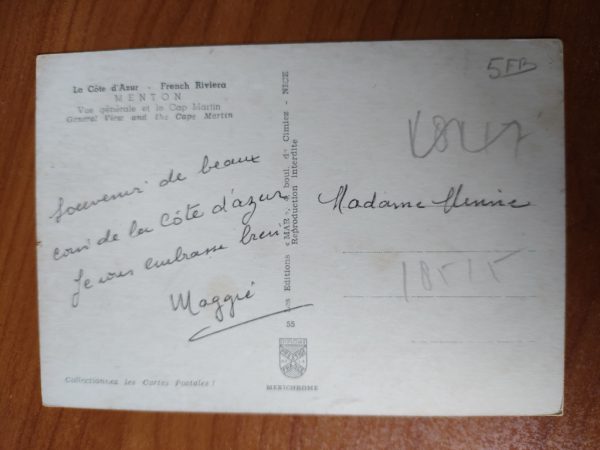 La Côte d'Azur - French Riviera
MENTON
Vue générale et le Cap Martin
General View and the Cape Martin
Souvenir de beaux
coin de la Côte d'azur
Je vous embrasse bien
Maggie
Collectionnez les Cartes Postales !
Les Editions « MAR », boul. de Cimiez - NICE
Reproduction interdite
55
MEXICHROME
5FB
Madame
18515